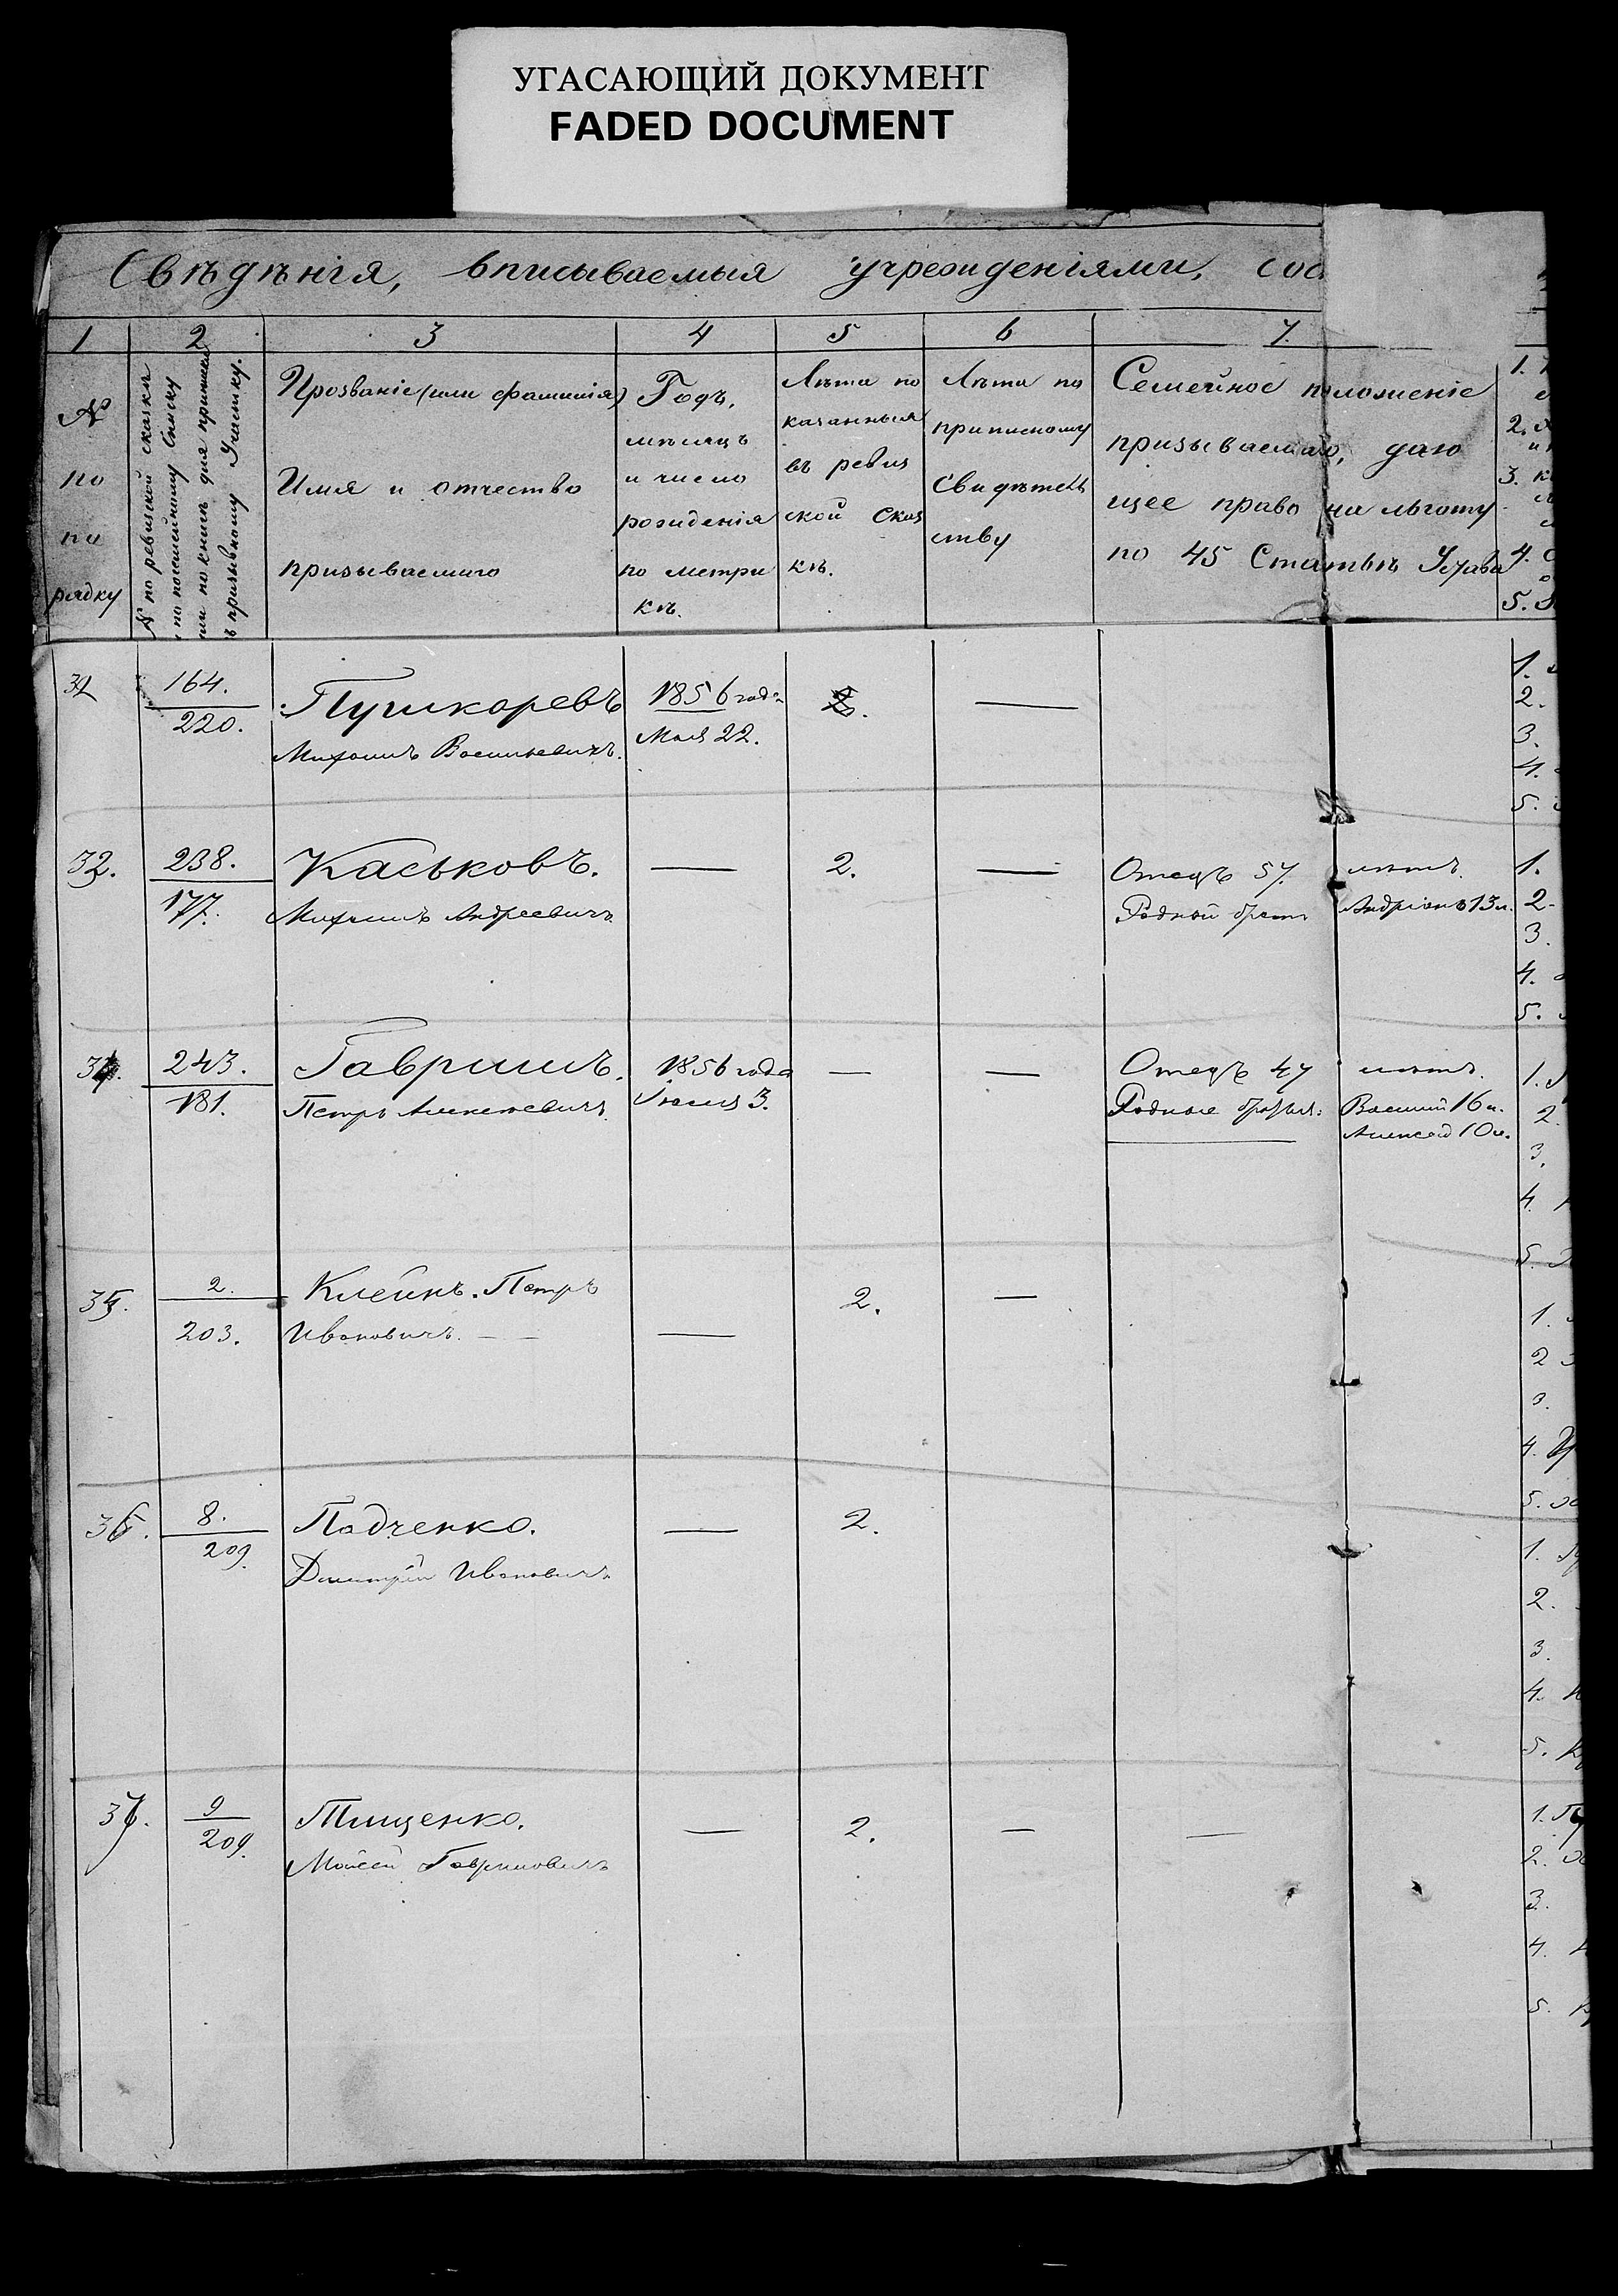 УГАСАЮЩИЙ ДОКУМЕНТ
FADED DOCUMENT
Свѣдѣнія, вписываемыя учрежденіями, сос
1 2 3 4 5 6 7.
№
по
по
рядку
№ по ревизской сказкѣ
по посемейному списку
или по книгѣ для приписки
къ призывному Участку.
Прозваніе (или фамилія)
Имя и отчество
призываемаго
Годъ,
мѣсяцъ
и число
рожденія
по метри
кѣ.
Лѣта по
казанныя
въ ревиз
ской сказ
кѣ.
Лѣта по
приписному
Свидѣтель
ству
Семейное положеніе
призываемаго, даю
щее право на льготу
по 45 Статьѣ Устава
1.
2.
3.
4.
5.
32
164.
220.
Пушкаревъ
Михаилъ Васильевичъ.
1856 года
Мая 22.
2.
—
1.
2.
3.
4.
5.
32.
238.
177.
Каськовъ.
Михаилъ Андреевичъ
—
2.
—
Отецъ 57. лѣтъ.
Родной братъ Андріанъ 13 л.
1.
2.
3.
4.
5.
34.
243.
181.
Гавришъ.
Петръ Алексѣевичъ
1856 года
Іюля 3.
—
—
Отецъ 47 лѣтъ.
Родные братья: Василій 16 л.
Алексей 10 л.
1.
2.
3.
4.
5.
35.
2.
203.
Клейнъ. Петръ
Ивановичъ. — —
—
2.
—
1.
2
3.
4.
5.
36.
8.
209.
Падченко.
Дмитрій Ивановичъ
—
2.
1.
2.
3.
4.
5.
37.
9
209.
Тищенко.
Моисей Гавриловичъ
—
2.
—
—
1.
2.
3.
4.
5.